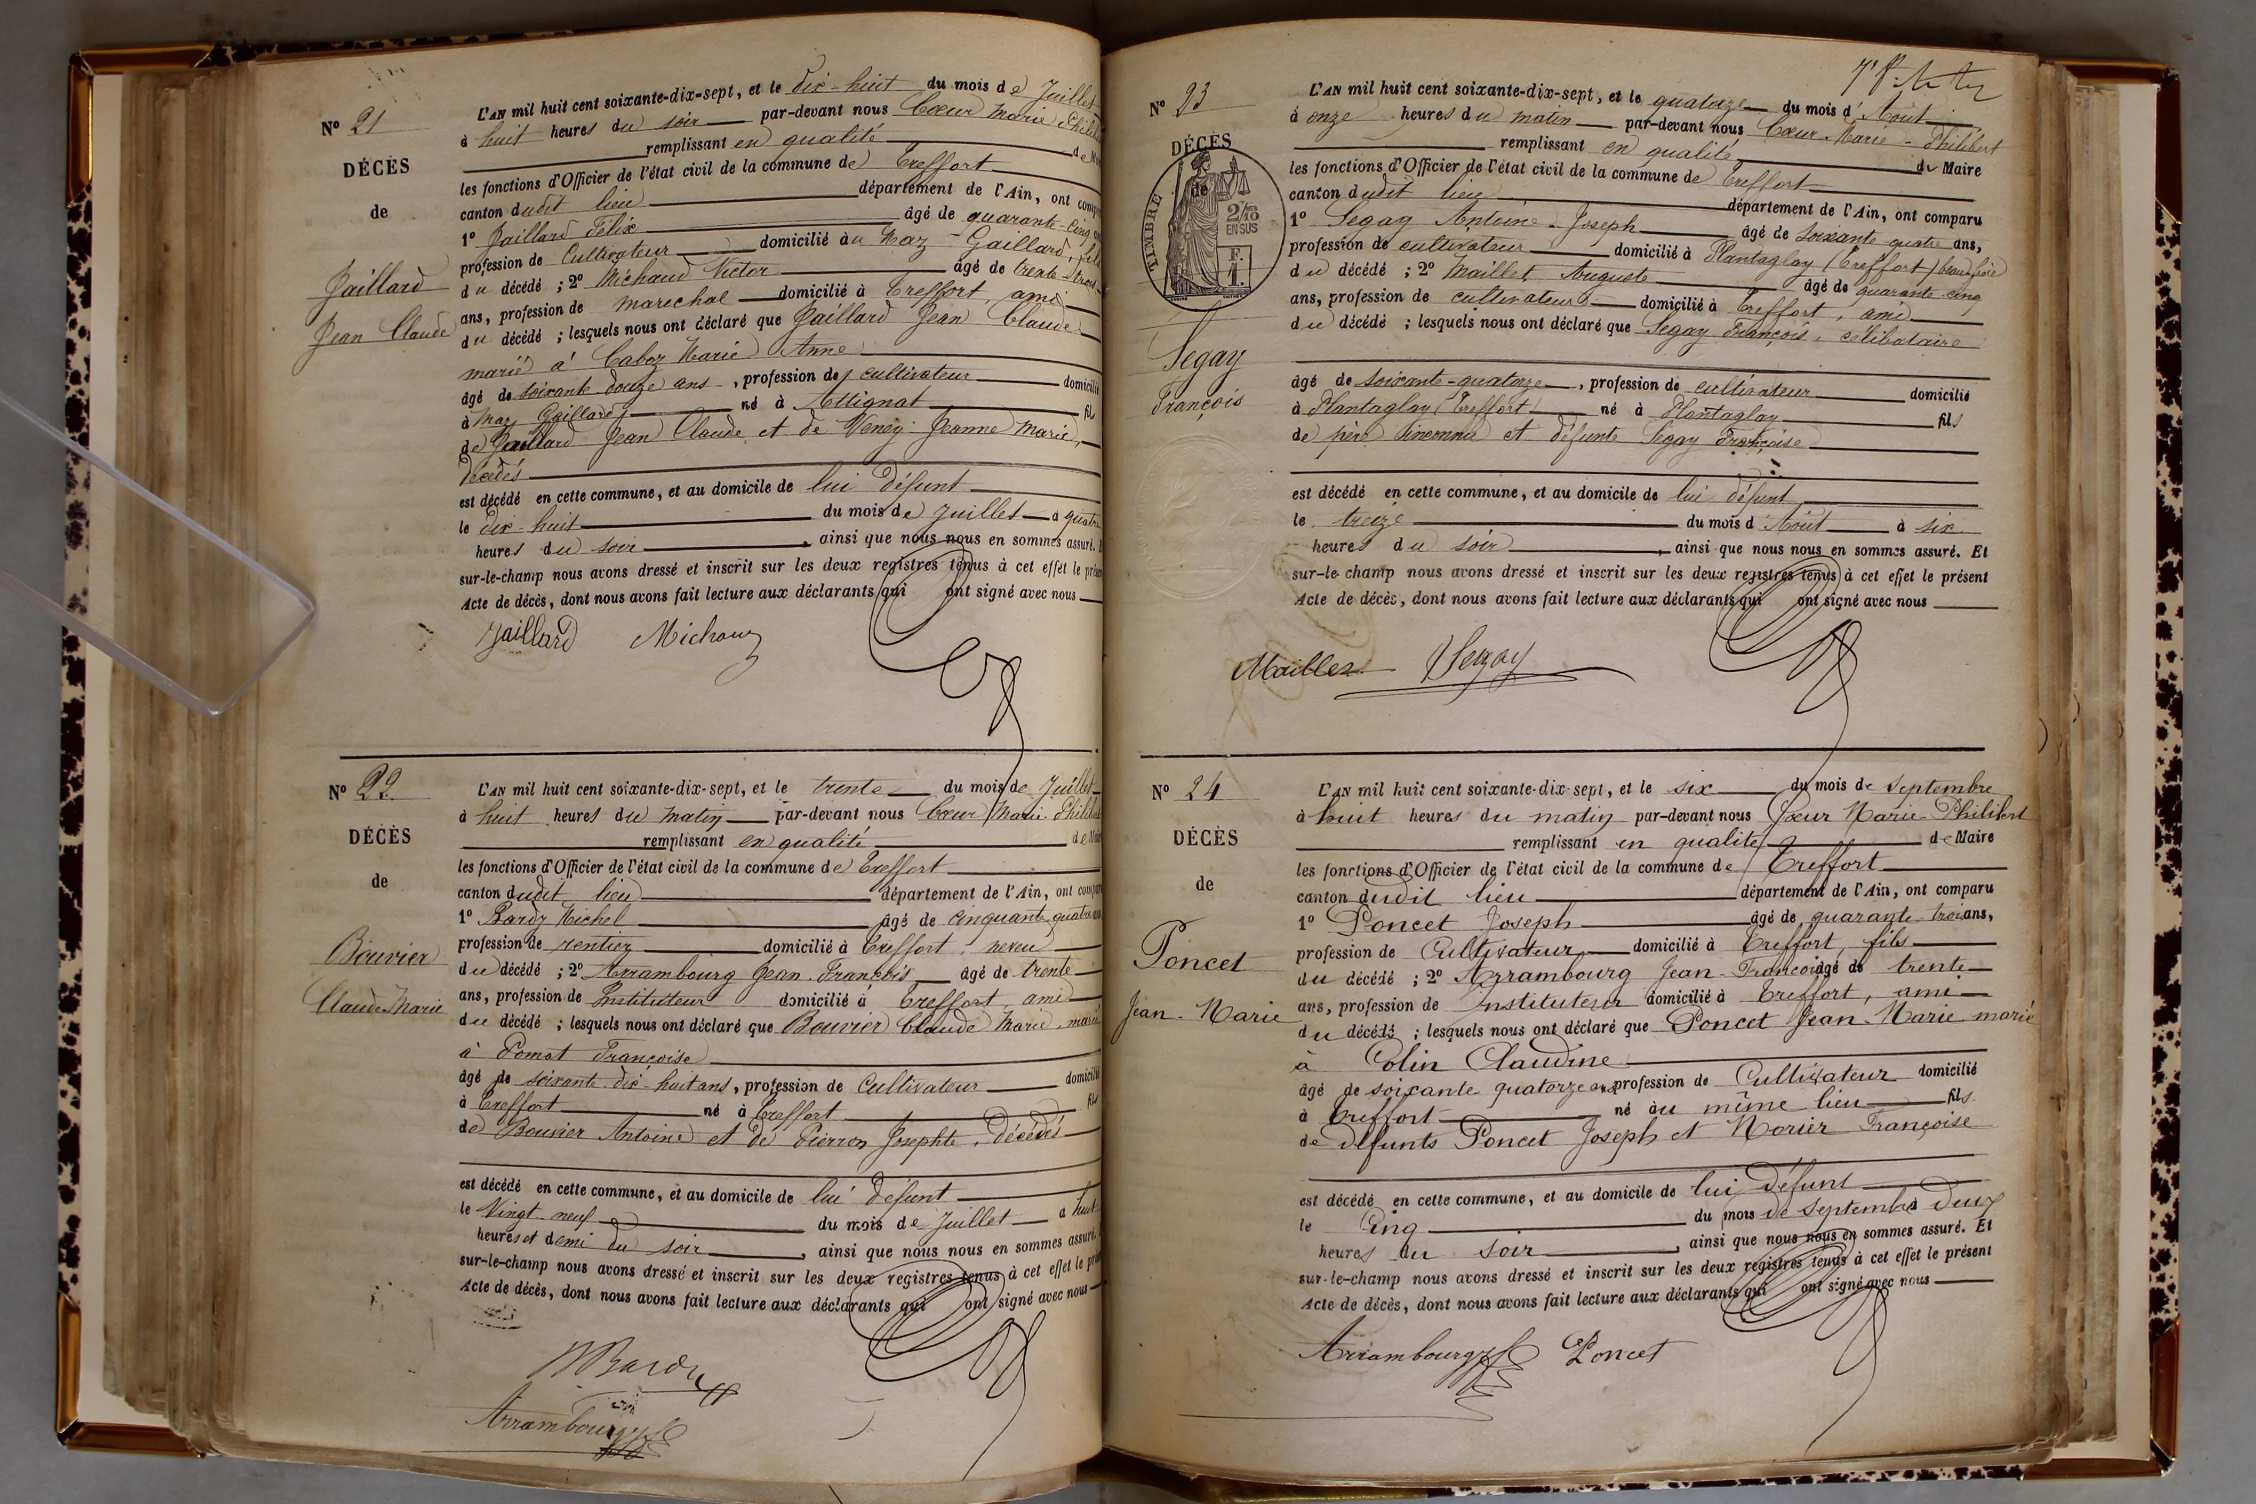 N° 21
DÉCÈS
de
Jaillard
Jean Claude
L'AN mil huit cent soixante-dix-sept, et le dix-huit du mois de Juillet
à huit heures du soir par-devant nous Cœur Marie Philib
remplissant en qualité de M
les fonctions d'Officier de l'état civil de la commune de Treffort
canton dudit lieu département de l'Ain, ont comp
1° Jaillard Félix âgé de quarante-cinq
profession de Cultivateur domicilié au Maz-Gaillard, fils
du décédé ; 2° Michaud Victor âgé de trente-trois
ans, profession de marechal domicilié à Treffort, ami
du décédé ; lesquels nous ont déclaré que Jaillard Jean Claude
marié à Caboz Marie Anne
âgé de soixante douze ans, profession de cultivateur domicilié
à Maz Gaillard né à Attignat fils
de Jaillard Jean Claude et de Veney Jeanne Marie,
décédés
est décédé en cette commune, et au domicile de lui défunt
le dix-huit du mois de Juillet à quatre
heures du soir, ainsi que nous nous en sommes assuré. E
sur-le-champ nous avons dressé et inscrit sur les deux registres tenus à cet effet le prése
Acte de décès, dont nous avons fait lecture aux déclarants qui ont signé avec nous
Jaillard Michaud
N° 22
DÉCÈS
de
Bouvier
Claude Marie
L'AN mil huit cent soixante-dix-sept, et le trente du mois de Juillet
à huit heures du matin par-devant nous Cœur Marie Philib
remplissant en qualité de Mai
les fonctions d'Officier de l'état civil de la commune de Treffort
canton dudit lieu département de l'Ain, ont compa
1° Bardy Michel âgé de cinquante-quatre ans
profession de rentier domicilié à Treffort, neveu
du décédé ; 2° Arrambourg Jean-François âgé de trente
ans, profession de Instituteur domicilié à Treffort, ami
du décédé ; lesquels nous ont déclaré que Bouvier Claude Marie, marié
à Pomat Françoise
âgé de soixante-dix-huit ans, profession de Cultivateur domicilié
à Treffort né à Treffort fils
de Bouvier Antoine et de Pierron Josephte, décédés
est décédé en cette commune, et au domicile de lui défunt
le Vingt-neuf du mois de Juillet à huit
heures et demi du soir, ainsi que nous nous en sommes assuré.
sur-le-champ nous avons dressé et inscrit sur les deux registres tenus à cet effet le prés
Acte de décès, dont nous avons fait lecture aux déclarants qui ont signé avec nous
MBardy
Arrambourg
N° 23
DÉCÈS
de
TIMBRE
2/10
EN SUS
F.
1.
Segay
François
L'AN mil huit cent soixante-dix-sept, et le quatorze du mois d'Août
à onze heures du matin par-devant nous Cœur Marie-Philibert
remplissant en qualité de Maire
les fonctions d'Officier de l'état civil de la commune de Treffort
canton dudit lieu département de l'Ain, ont comparu
1° Segay Antoine-Joseph âgé de soixante-quatre ans,
profession de cultivateur domicilié à Plantaglay (Treffort) beau-frère
du décédé ; 2° Maillet Auguste âgé de quarante-cinq
ans, profession de cultivateur domicilié à Treffort, ami
du décédé ; lesquels nous ont déclaré que Segay François, célibataire
âgé de soixante-quatorze, profession de cultivateur domicilié
à Plantaglay (Treffort) né à Plantaglay fils
de père inconnu et défunte Segay Françoise
est décédé en cette commune, et au domicile de lui défunt
le treize du mois d'Août à six
heures du soir, ainsi que nous nous en sommes assuré. Et
sur-le-champ nous avons dressé et inscrit sur les deux registres tenus à cet effet le présent
Acte de décès, dont nous avons fait lecture aux déclarants qui ont signé avec nous
Maillet Segay
N° 24
DÉCÈS
de
Poncet
Jean-Marie
L'AN mil huit cent soixante-dix-sept, et le six du mois de Septembre
à huit heures du matin par-devant nous Cœur Marie-Philibert
remplissant en qualité de Maire
les fonctions d'Officier de l'état civil de la commune de Treffort
canton dudit lieu département de l'Ain, ont comparu
1° Poncet Joseph âgé de quarante-trois ans,
profession de Cultivateur domicilié à Treffort, fils
du décédé ; 2° Arrambourg Jean-François âgé de trente
ans, profession de Instituteur domicilié à Treffort, ami
du décédé ; lesquels nous ont déclaré que Poncet Jean-Marie marié
à Colin Claudine
âgé de soixante quatorze ans profession de Cultivateur domicilié
à Treffort né au même lieu fils
de défunts Poncet Joseph et Morier Françoise
est décédé en cette commune, et au domicile de lui défunt
le Cinq du mois de septembre à deux
heures du soir, ainsi que nous nous en sommes assuré. Et
sur-le-champ nous avons dressé et inscrit sur les deux registres tenus à cet effet le présent
Acte de décès, dont nous avons fait lecture aux déclarants qui ont signé avec nous
Arrambourg Poncet